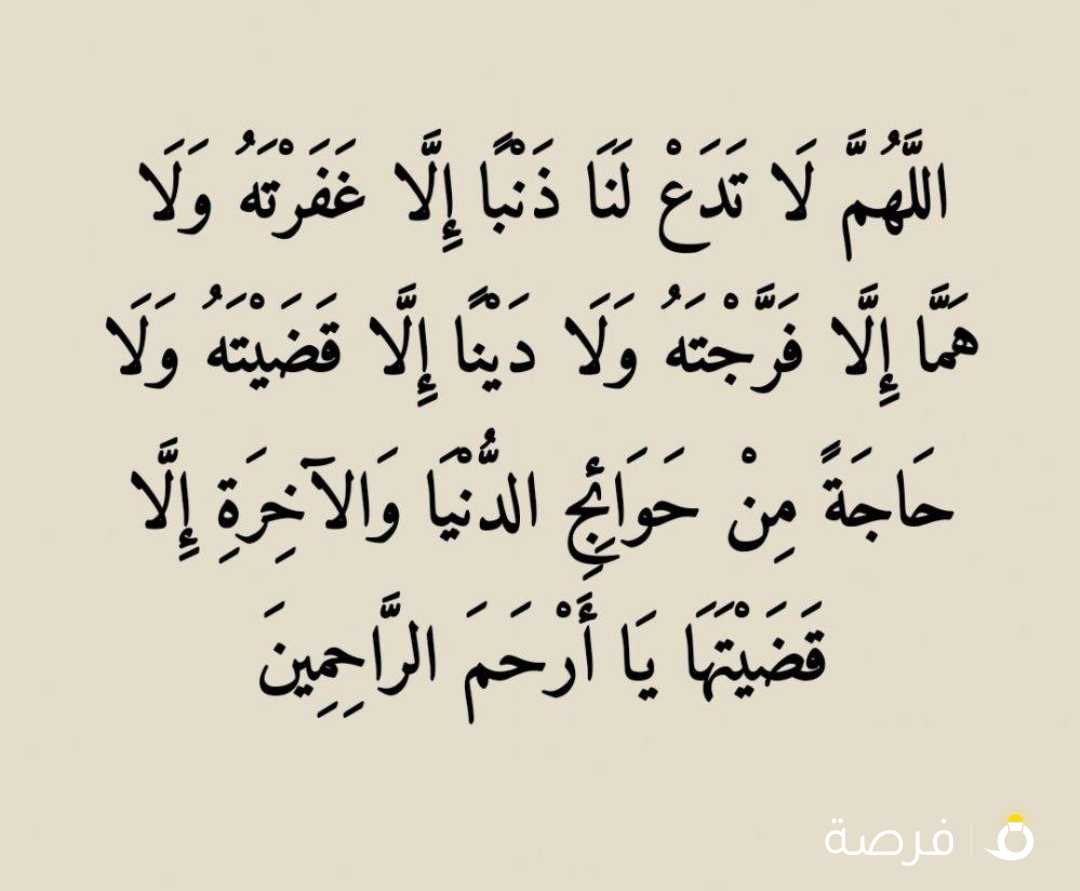 اللَّهُمَّ لَا تَدَعْ لَنَا ذَنْبًا إِلَّا غَفَرْتَهُ وَلَا
هَمَّا إِلَّا فَرَّجْتَهُ وَلَا دَيْنًا إِلَّا قَضَيْتَهُ وَلَا
حَاجَةً مِنْ حَوَائِجِ الدُّنْيَا وَالآخِرَةِ إِلَّا
قَضَيْتَهَا يَا أَرْحَمَ الرَّاحِمِينَ
فرصة